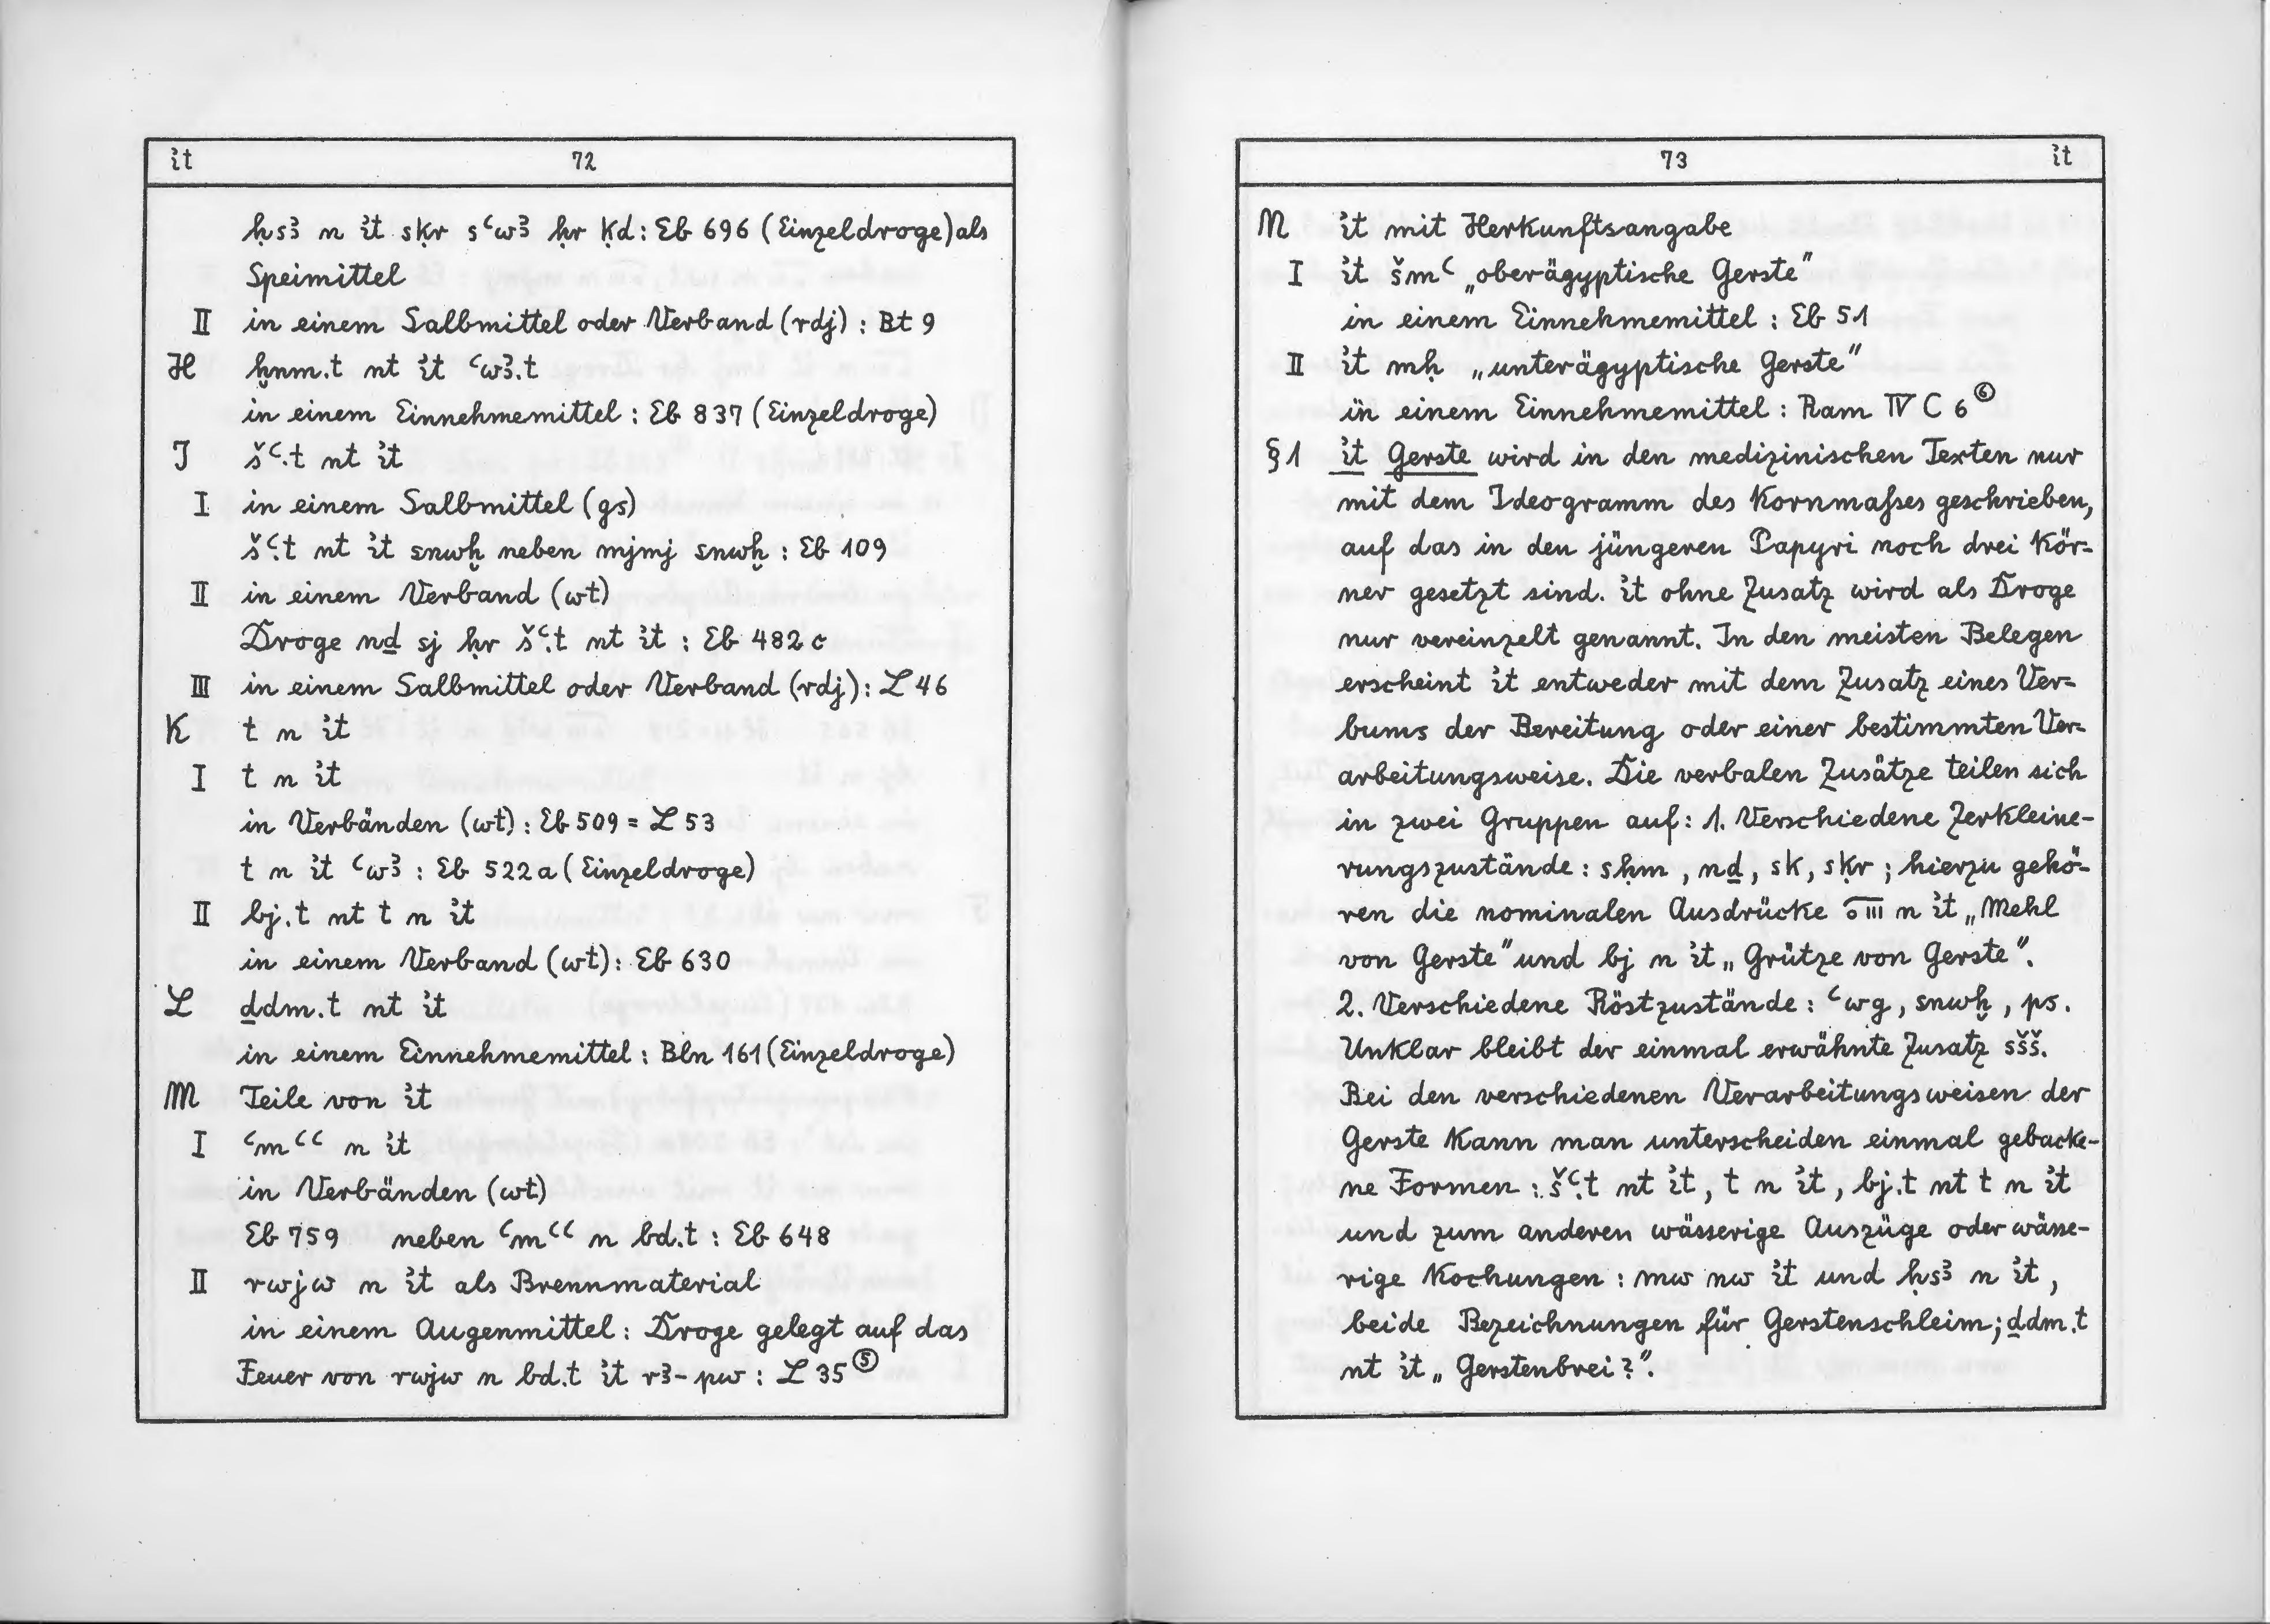 ı͗t 72
ḥsꜣ n ı͗t sḳr sꜥwꜣ ḥr ḳd : Eb 696 (Einzeldroge) als
Speimittel
II in einem Salbmittel oder Verband (rdj) : Bt 9
H ẖnm.t nt ı͗t ꜥwꜣ.t
in einem Einnehmemittel : Eb 837 (Einzeldroge)
J šꜥ.t nt ı͗t
I in einem Salbmittel (gs)
šꜥ.t nt ı͗t snwḫ neben mjmj snwḫ : Eb 109
II in einem Verband (wt)
Droge nḏ sj ḥr šꜥ.t nt ı͗t : Eb 482 c
III in einem Salbmittel oder Verband (rdj) : L 46
K t n ı͗t
I t n ı͗t
in Verbänden (wt) : Eb 509 = L 53
t n ı͗t ꜥwꜣ : Eb 522 a (Einzeldroge)
II bj.t nt t n ı͗t
in einem Verband (wt) : Eb 630
L ḏdm.t nt ı͗t
in einem Einnehmemittel : Bln 161 (Einzeldroge)
M Teile von ı͗t
I ꜥmꜥꜥ n ı͗t
in Verbänden (wt)
Eb 759 neben ꜥmꜥꜥ n bd.t : Eb 648
II rwjw n ı͗t als Brennmaterial
in einem Augenmittel : Droge gelegt auf das
Feuer von rwjw n bd.t ı͗t rꜣ-pw : L 35 ⑤
73 ı͗t
M ı͗t mit Herkunftsangabe
I ı͗t šmꜥ „oberägyptische Gerste"
in einem Einnehmemittel : Eb 51
II ı͗t mḥ „unterägyptische Gerste"
in einem Einnehmemittel : Ram IV C 6 ⑥
§ 1 ı͗t Gerste wird in den medizinischen Texten nur
mit dem Ideogramm des Kornmaßes geschrieben,
auf das in den jüngeren Papyri noch drei Kör=
ner gesetzt sind. ı͗t ohne Zusatz wird als Droge
nur vereinzelt genannt. In den meisten Belegen
erscheint ı͗t entweder mit dem Zusatz eines Ver=
bums der Bereitung oder einer bestimmten Ver-
arbeitungsweise. Die verbalen Zusätze teilen sich
in zwei Gruppen auf : 1. Verschiedene Zerkleine-
rungszustände : sḥm , nḏ , sk , sḳr ; hierzu gehö-
ren die nominalen Ausdrücke n ı͗t „Mehl
von Gerste" und bj n ı͗t „Grütze von Gerste".
2. Verschiedene Röstzustände : ꜥwg , snwḫ , ps.
Unklar bleibt der einmal erwähnte Zusatz sšš.
Bei den verschiedenen Verarbeitungsweisen der
Gerste kann man unterscheiden einmal gebacke-
ne Formen : šꜥ.t nt ı͗t , t n ı͗t , bj.t nt t n ı͗t
und zum anderen wässerige Auszüge oder wässe-
rige Kochungen : mw nw ı͗t und ḥsꜣ n ı͗t ,
beide Bezeichnungen für Gerstenschleim ; ḏdm.t
nt ı͗t „Gerstenbrei ?".